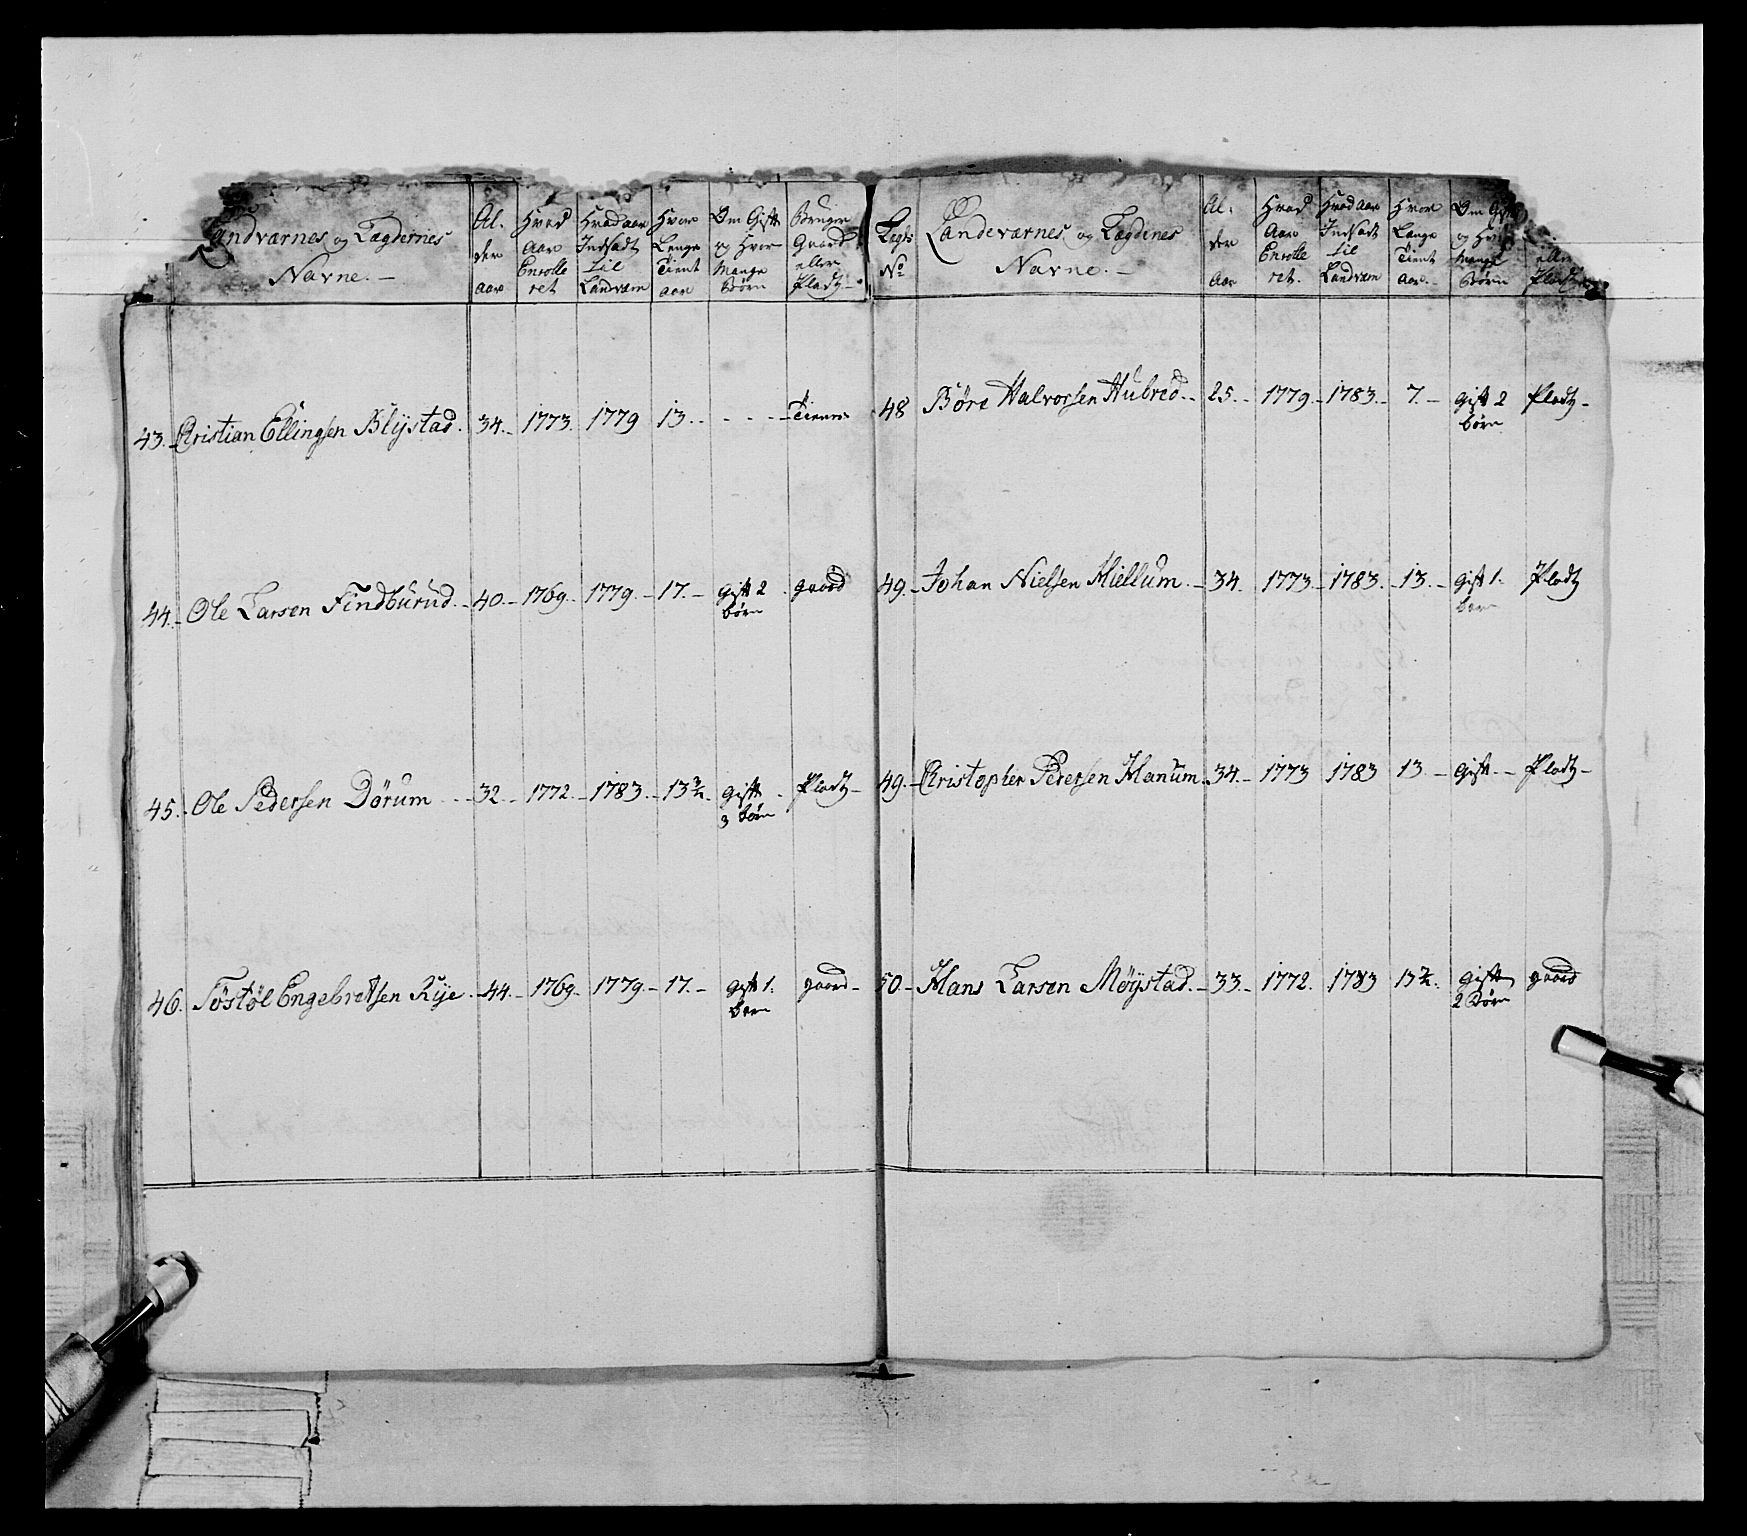 Landværnes og Lægdernes
Navne. –
Al.
der
aar
Hvad
Aar
Enrolle
ret
Hvad aar
Indsadt
til
Landværn
Hvor
Længe
Tient
aar
Om Gift
og Hvor
Mange
Børn
Bruger
Gaard
eller
Pladz –
43. Christian Ellingsen Blÿstad. 34. – 1773. 1779 13. - - - - Tiener
44. – Ole Larsen Findburud. – 40. – 1769. 1779. – 17. – gift 2 gaard
børn
45. Ole Pedersen Dørum - - - 32. – 1772. – 1783. – 13½. gift Pladz –
3 børn
46. Tøstøl Engebretsen Rÿe. – 44. – 1769. – 1779. – 17. – gift 1. gaard –
barn
Lægds
No
Landeværnes og Lægdenes
Navne. –
Al.
der
Aar
Hvad
Aar
Enrolle
ret.
Hvad aar
Indsadt
til
Landværn
Hvor
Længe
Tient
Aar. –
Om Gift
og Hvor
Mange
Børn
eller
Pladz
48 Børe Halvorsen Hubred. – 25. – 1779. – 1783. – 7. – gift 2 Pladz –
børn
49. – Johan Nielsen Hiellum. – 34. 1773. – 1783. – 13. – gift 1. Pladz
barn
49. – Christopher Pedersen Hanum. 34. – 1773 1783 13 – gift. – Pladz –
50. – Hans Larsen Møÿstad. – 33. – 1772. 1783 13½. gift gaard
2 Børn